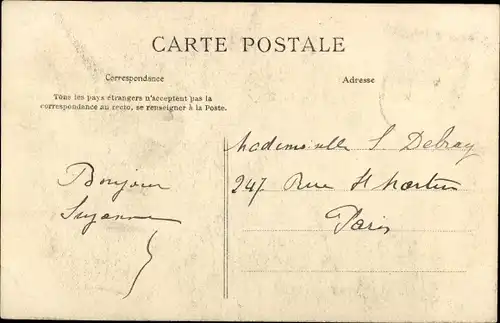 CARTE POSTALE
Correspondance
Adresse
Tous les pays étrangers n'acceptent pas la
correspondance au recto, se renseigner à la Poste.
Bonjour
Suzanne
Mademoiselle S Debray
247 Rue St Martin
Paris